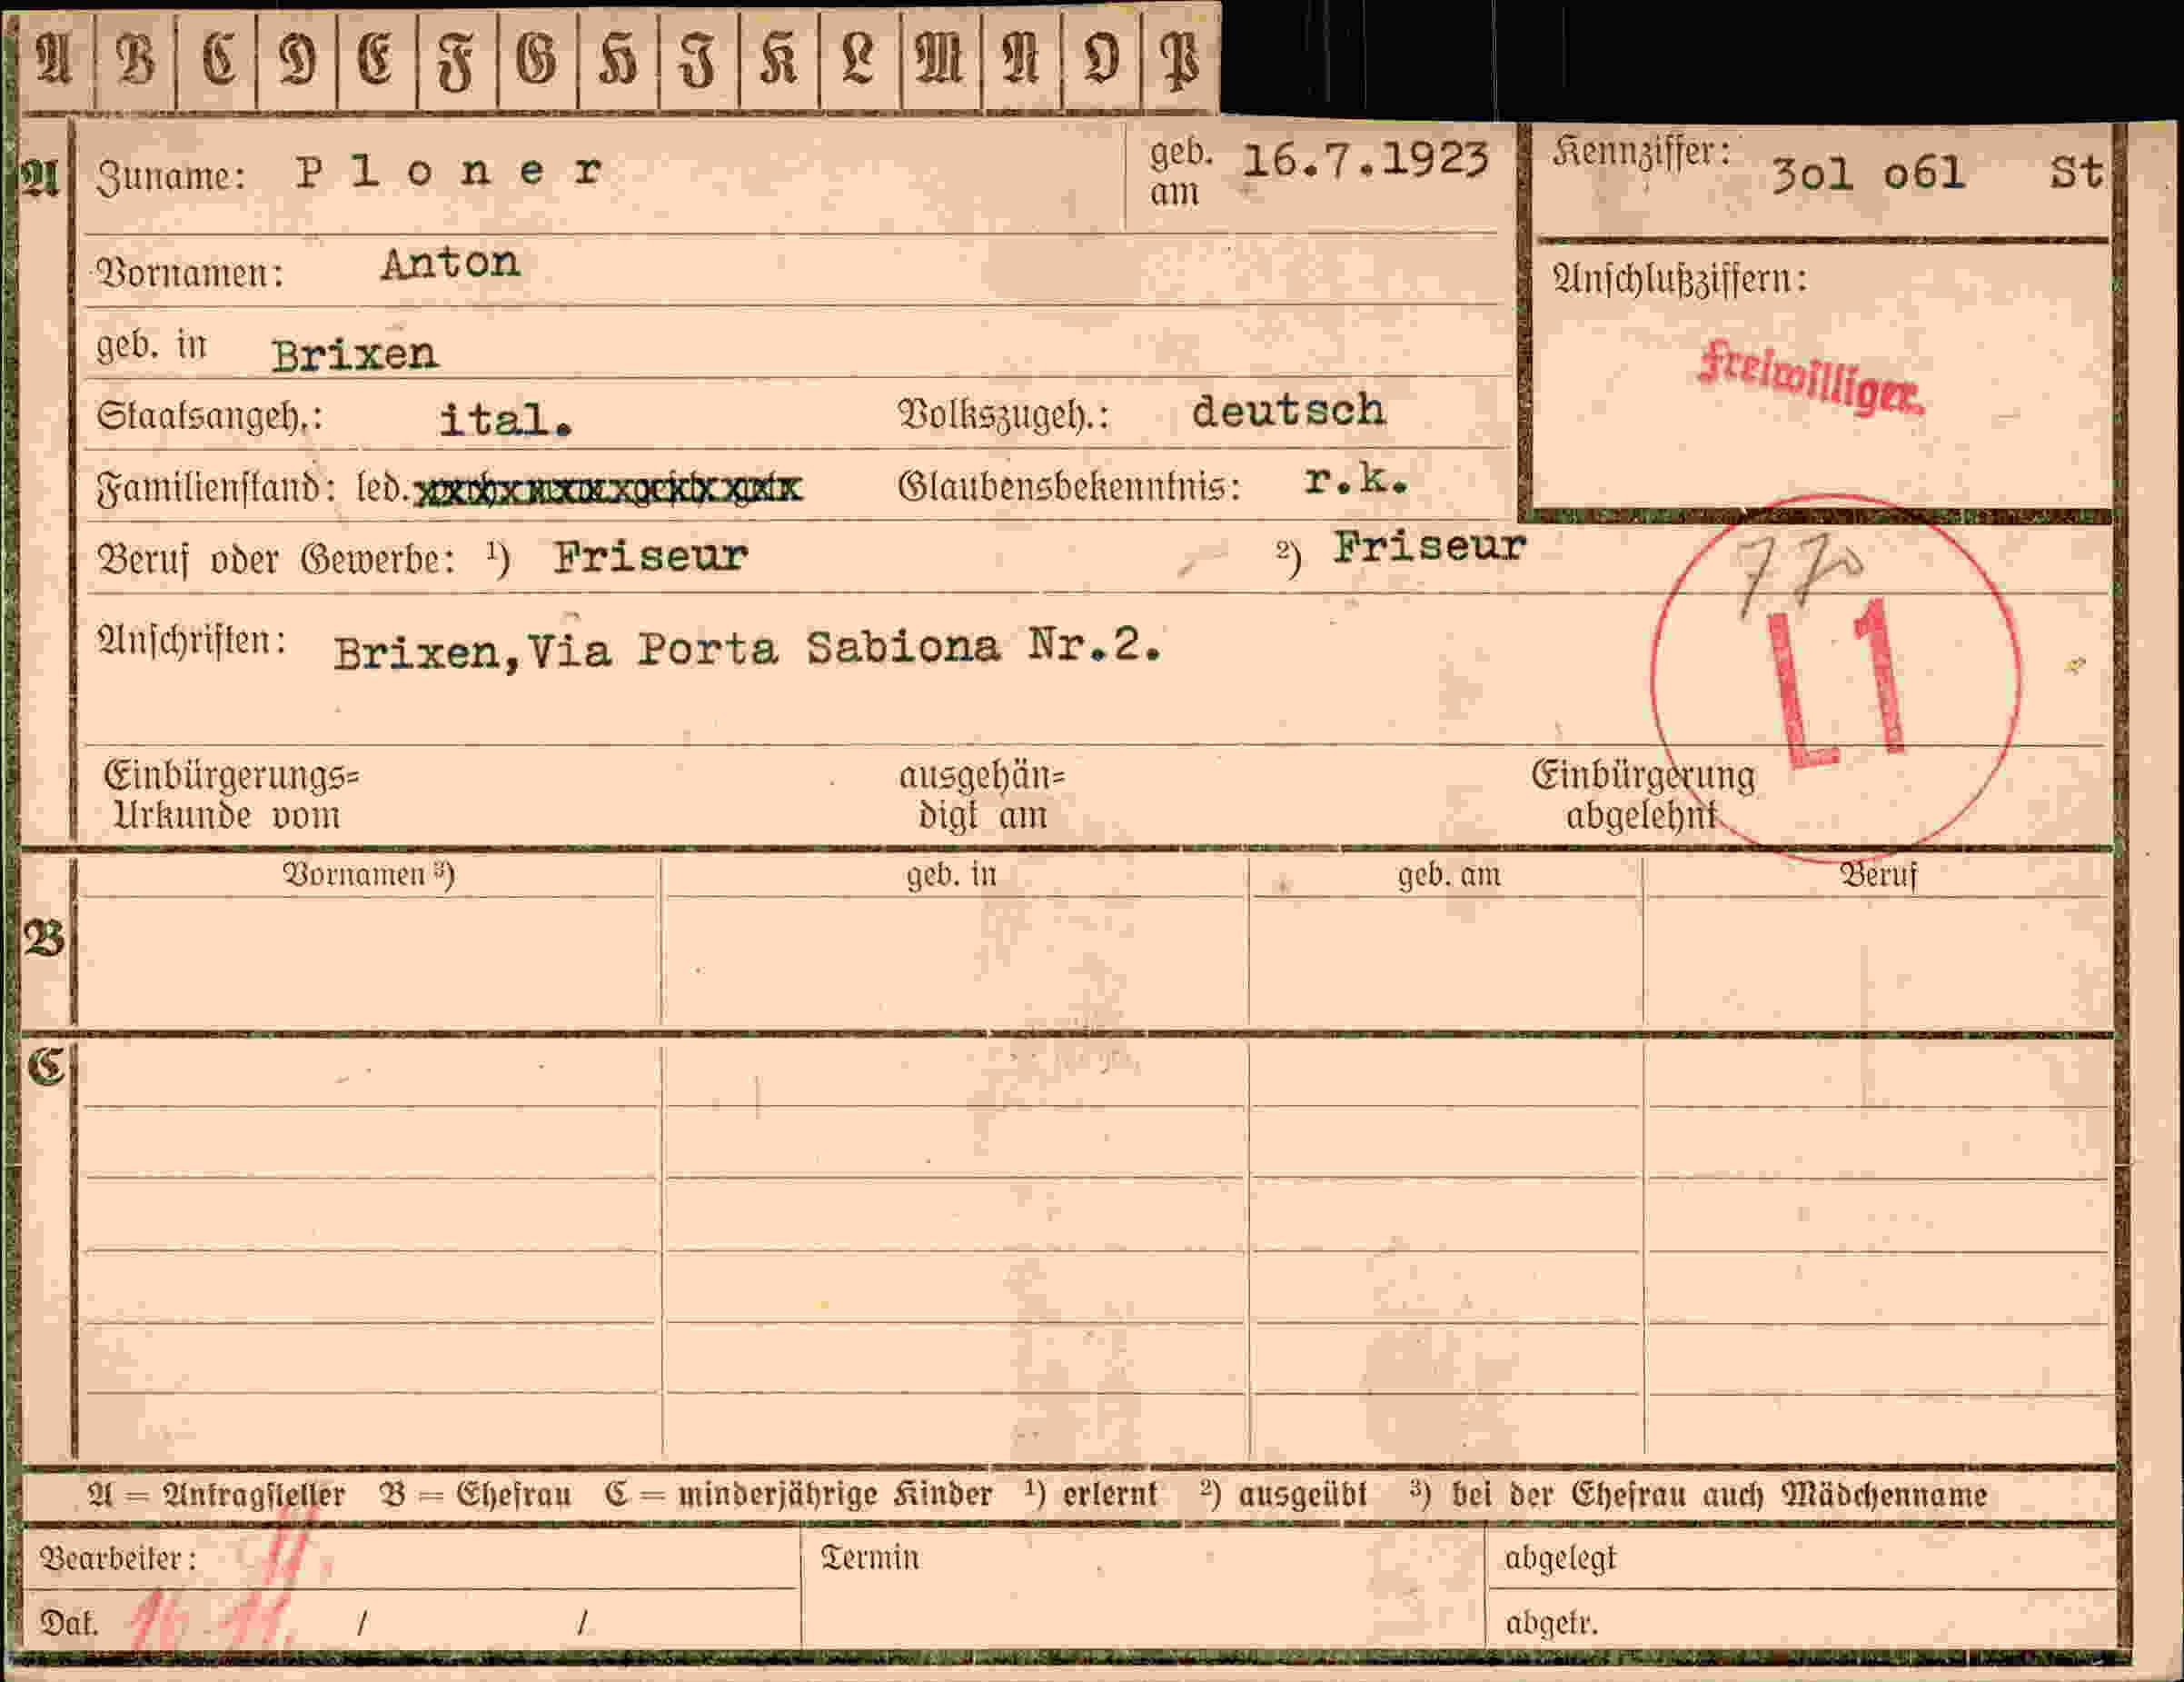 A B C D E F G H I K L M N O P
A Zuname: Ploner geb. am 16.7.1923 Kennziffer: 3o1 o61 St
Vornamen: Anton Anschlußziffern:
geb. in Brixen Freiwilliger.
Staatsangeh.: ital. Volkszugeh.: deutsch
Familienstand: led. Glaubensbekenntnis: r.k.
Beruf oder Gewerbe: ¹) Friseur ²) Friseur
Anschriften: Brixen, Via Porta Sabiona Nr.2. L1
Einbürgerungs= ausgehän= Einbürgerung
Urkunde vom digt am abgelehnt
Vornamen ³) geb. in geb. am Beruf
B
C
A = Antragsteller B = Ehefrau C = minderjährige Kinder ¹) erlernt ²) ausgeübt ³) bei der Ehefrau auch Mädchenname
Bearbeiter: Termin abgelegt
Dat. / / abgetr.